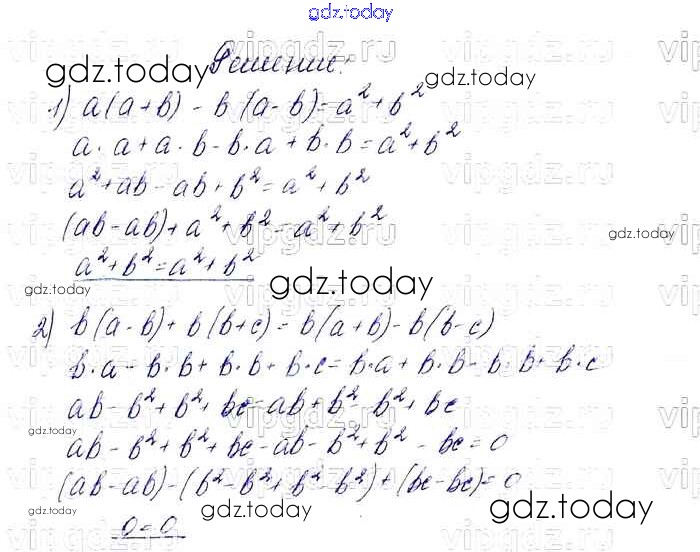 gdz.today
Решение:
gdz.today
gdz.today
1) a(a+b) - b(a-b)=a²+b²
a·a+a·b-b·a+b·b=a²+b²
a²+ab-ab+b²=a²+b²
(ab-ab)+a²+b²=a²+b²
gdz.today
a²+b²=a²+b²
gdz.today
gdz.today
2) b(a-b)+b(b+c)=b(a+b)-b(b-c)
b·a-b·b+b·b+b·c=b·a+b·b-b·b+b·c
ab-b²+b²+bc=ab+b²-b²+bc
gdz.today
ab-b²+b²+bc-ab-b²+b²-bc=0
(ab-ab)-(b²-b²+b²-b²)+(bc-bc)=0
gdz.today
gdz.today
0=0
gdz.today
vipgdz.ru